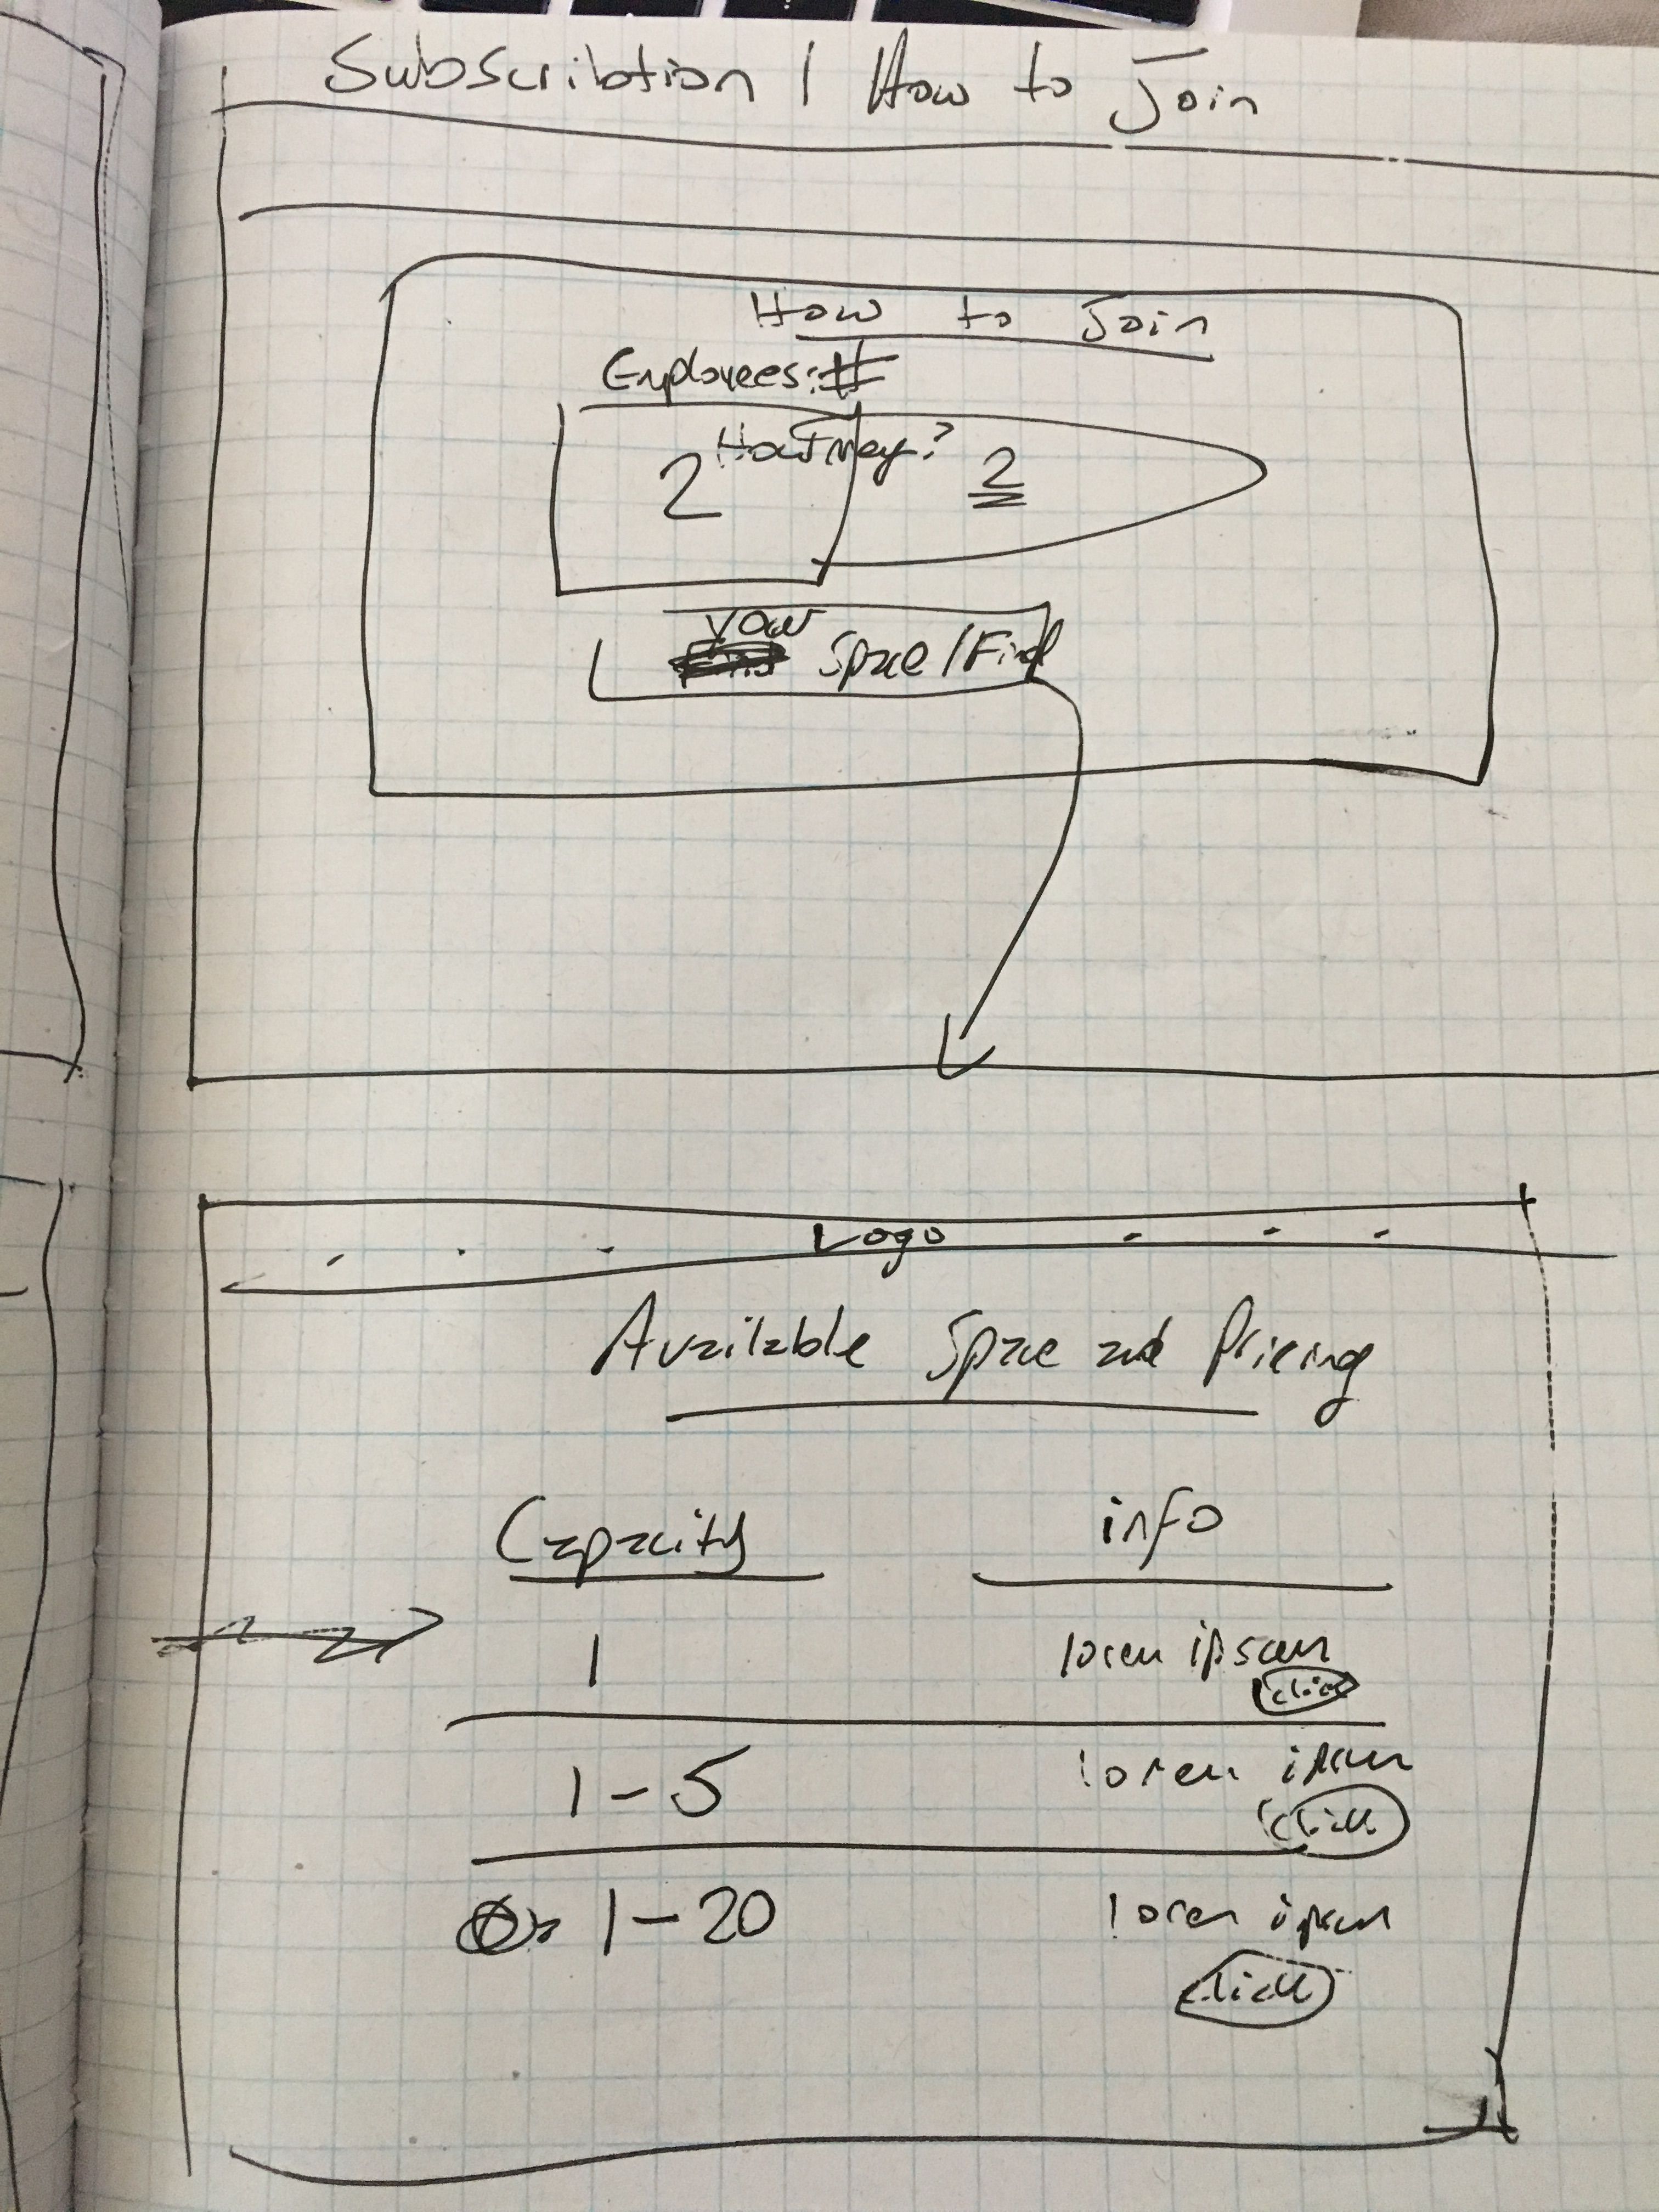 Subscribtion / How to Join
How to Join
Employees: #
How many?
2 2
your
Space / Find
Logo
Available Space and Pricing
Capacity info
1 lorem ipsum
click
1-5 lorem ipsum
click
1-20 lorem ipsum
click